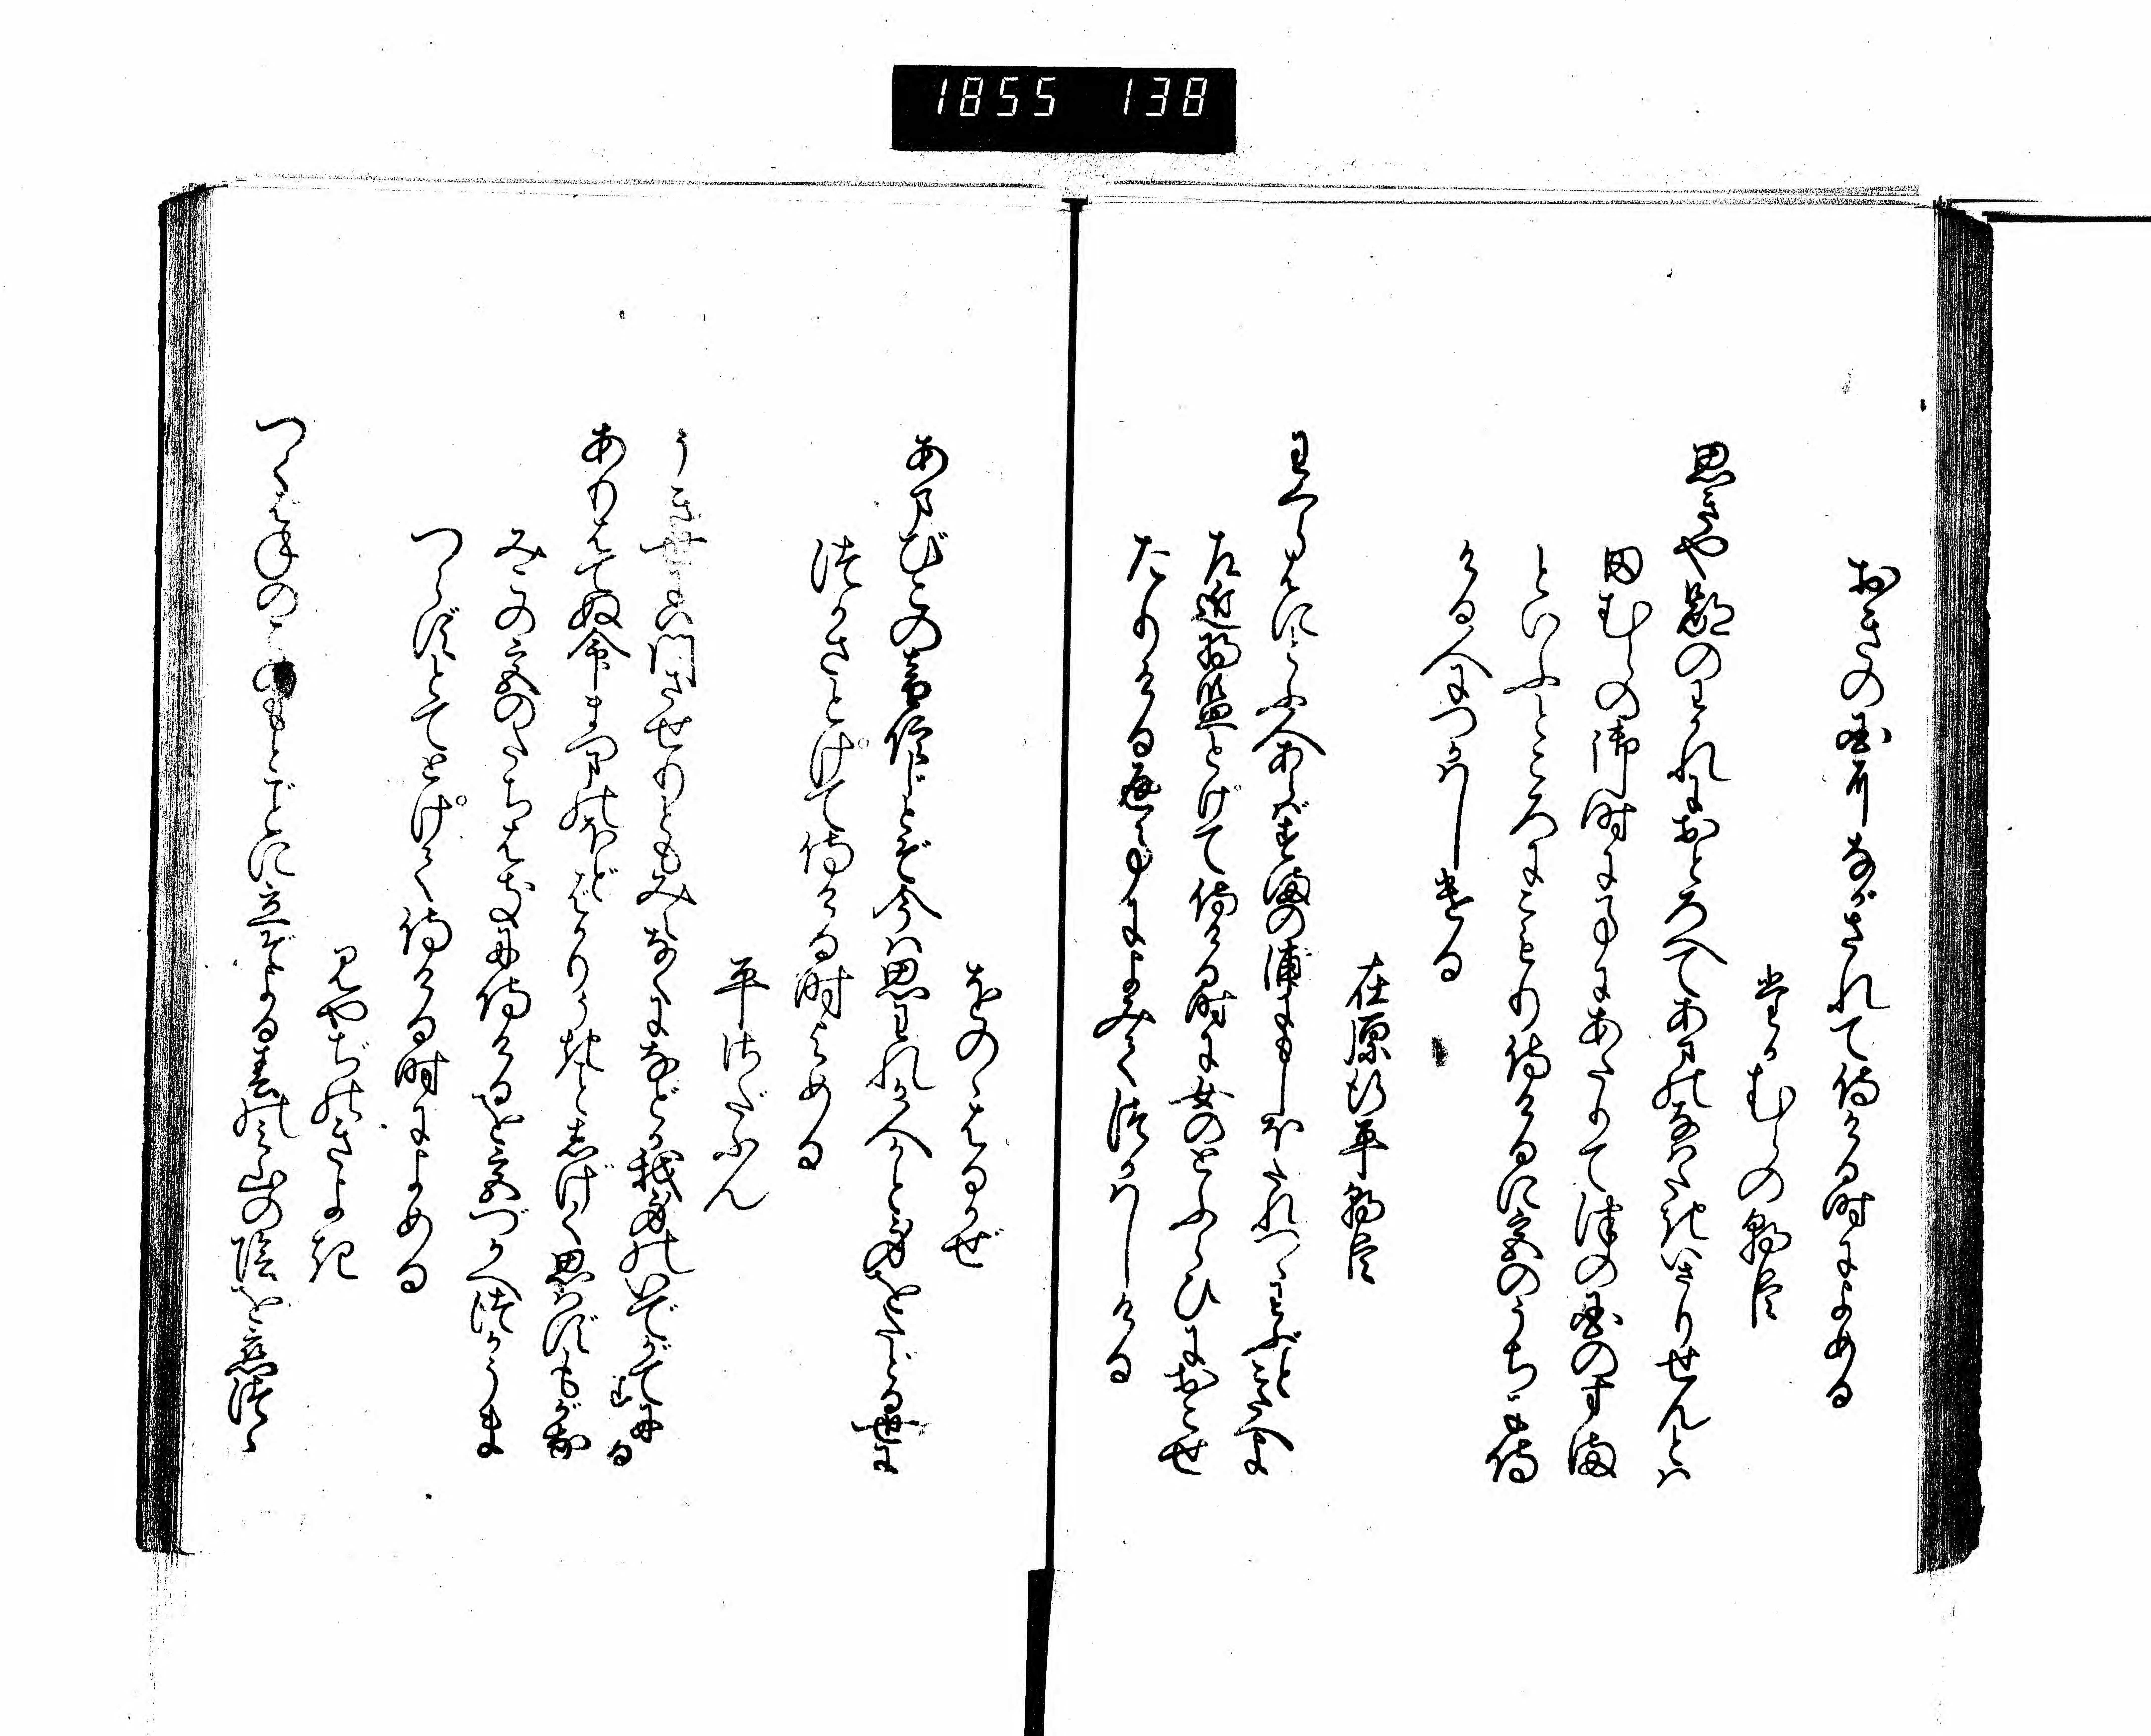 1855 138
おきの国にながされて侍ける時によめる
たかむらの朝臣
思きや鄙のわかれにおとろへてあまのなはたきいさりせんとは
田むらの御時に事にあたりて津の国のすま
といふところにこもり侍けるに宮のうちに侍
ける人につかはしける
在原行平朝臣
わくらばにとふ人あらばすまの浦にもしほたれつゝわぶとこたへよ
左近将監とけて侍ける時に女のとふらひにおこせ
たりける返事によみてつかはしける
をのゝはるかぜ
あまびこの音信じとぞ今は思われか人かと身をたどる世に
つかさとけて侍ける時よめる
平さだふん
うき世には門させりともみなくになどか我身のいでがてにする
ありはてぬ命まつまのほどばかりうきことしげく思はずもがな
みこの宮のたちはきに侍けるを宮づかへつかうま
つらずとてとけて侍ける時によめる
みやぢのきよき
つくばねのこのもとごとに立ぞよる春のみ山の陰を恋つゝ